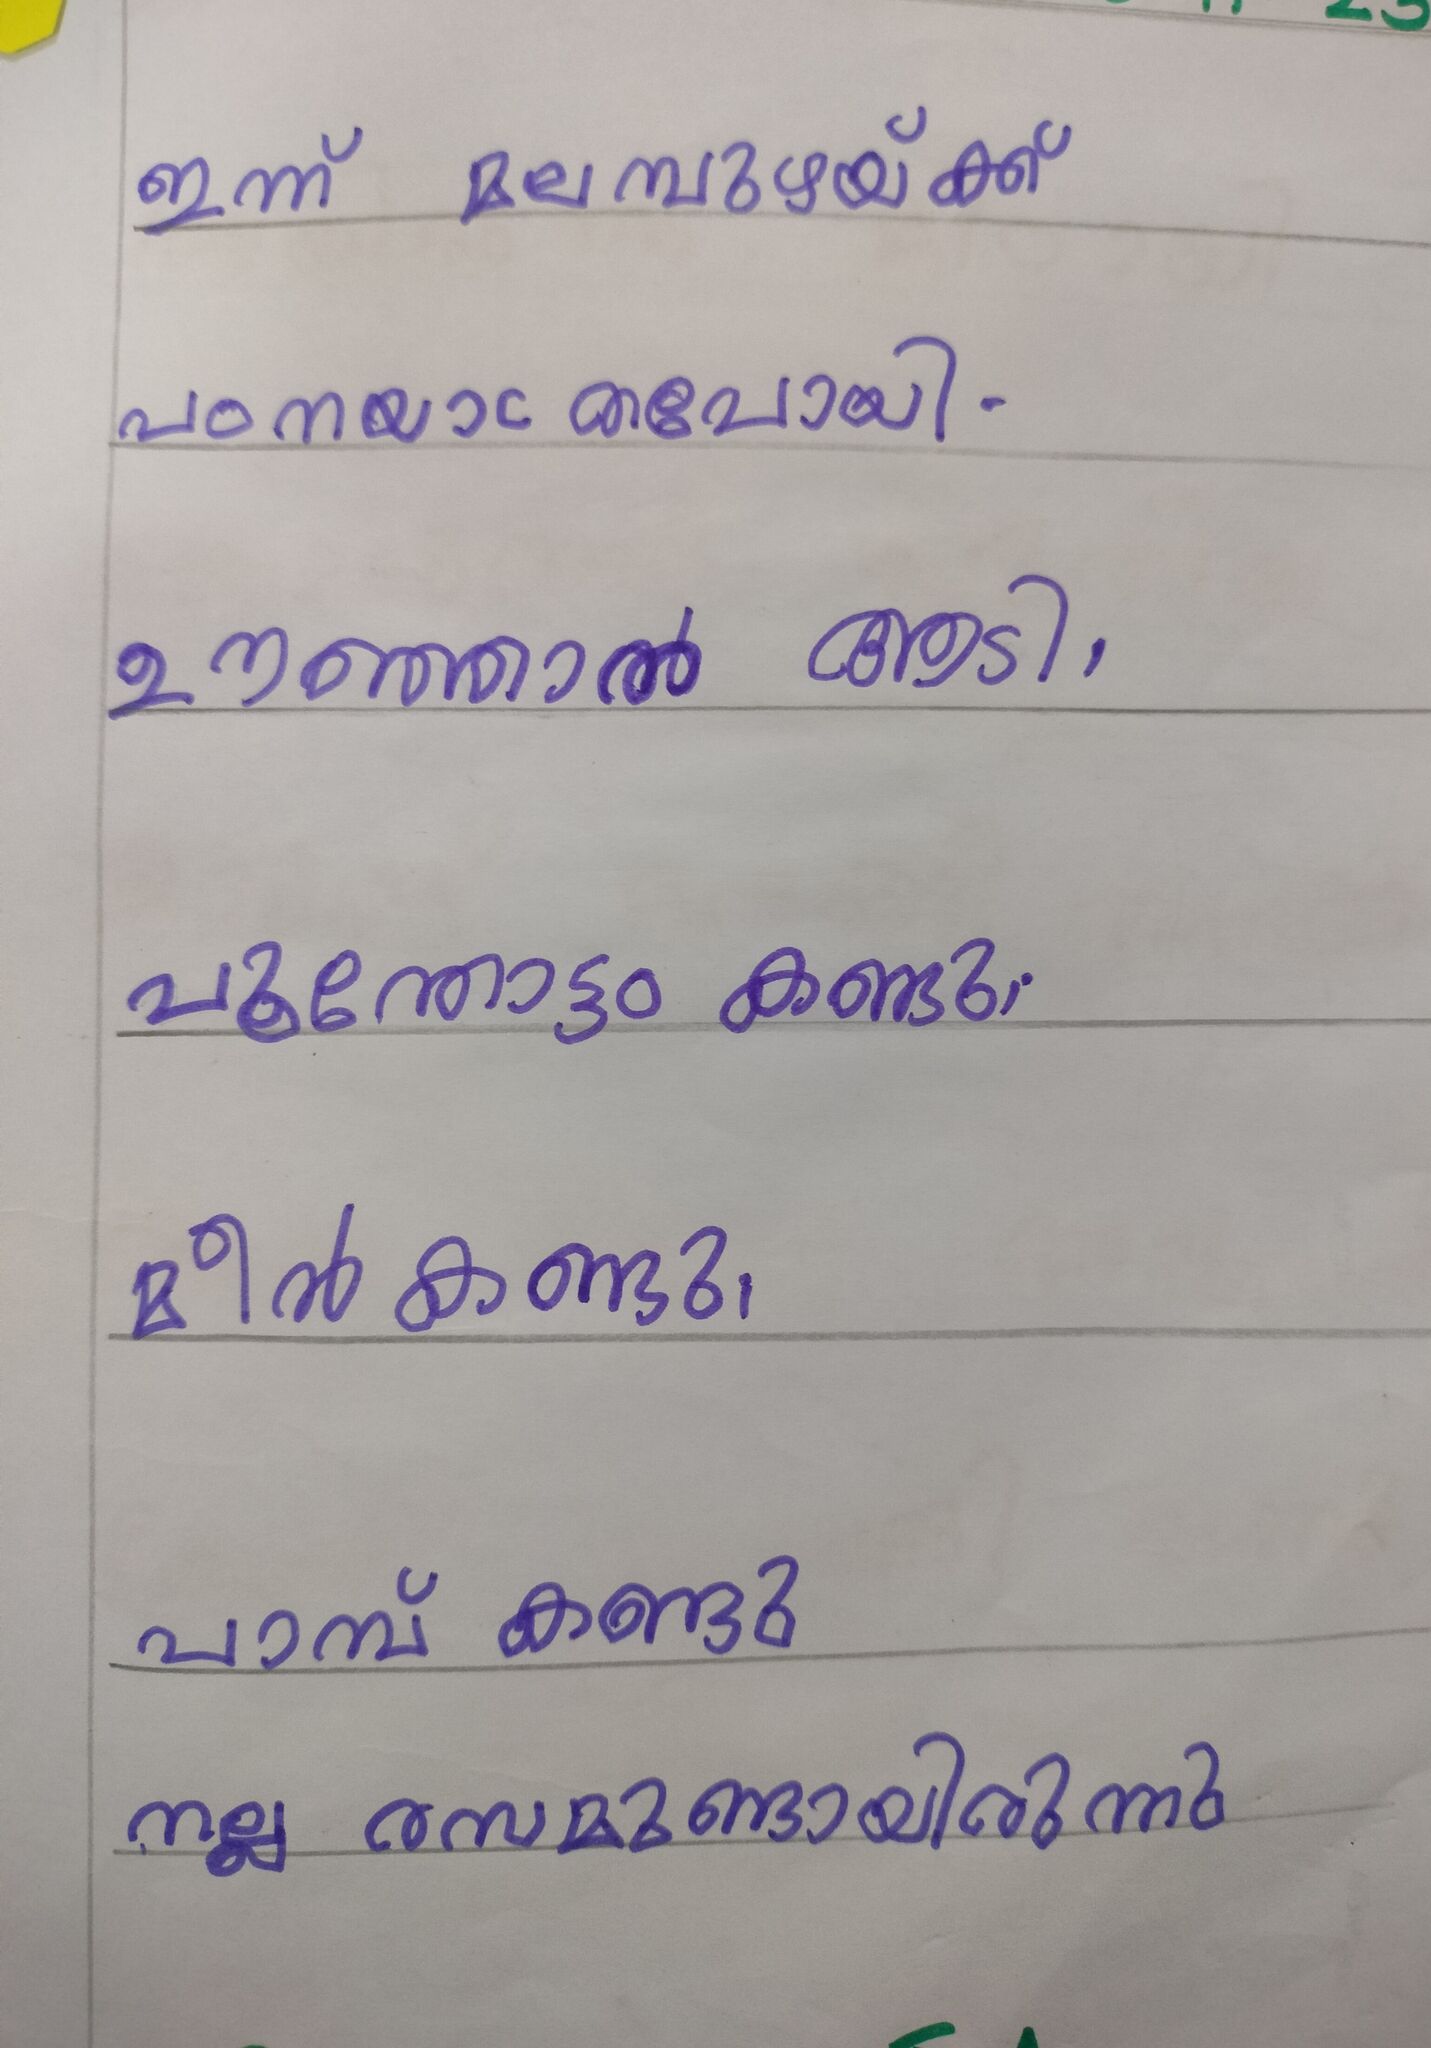 ഇന്ന് മലമ്പുഴയ്ക്ക്
പഠനയാ കപോയി.
ഊഞ്ഞാൽ ആടി.
പൂന്തോട്ടം കണ്ടു.
മീൻ കണ്ടു.
പാമ്പ് കണ്ടു
നല്ല രസമുണ്ടായിരുന്നു